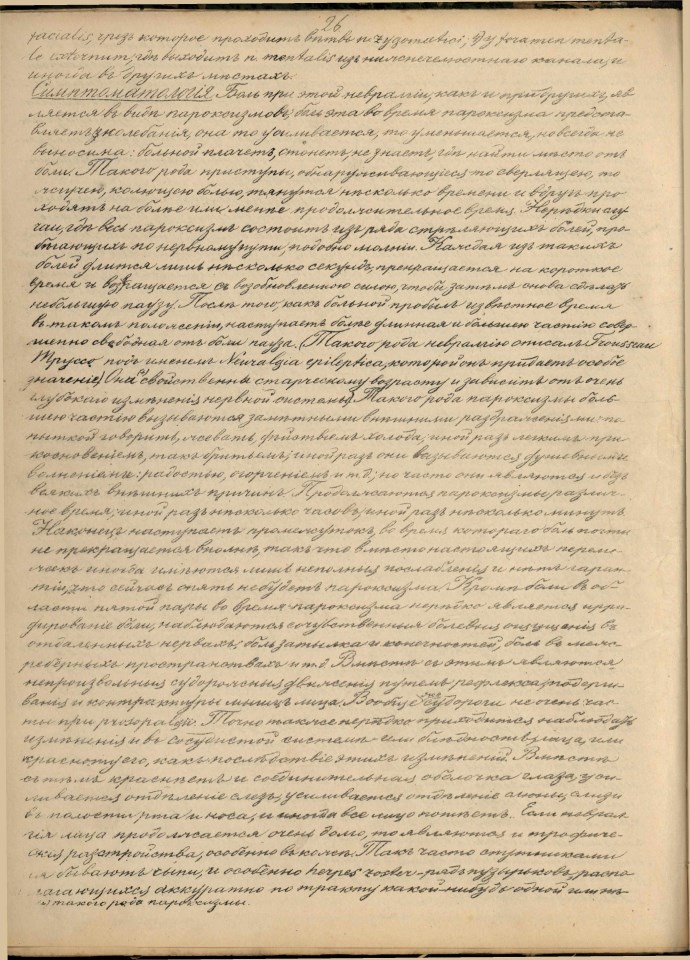 26
facialis, чрезъ которое проходитъ вѣтвь n. zygomatici; 3) foramen menta-
le externum, гдѣ выходитъ n. mentalis изъ нижнечелюстнаго канала, и
иногда въ другихъ мѣстахъ.
Симптоматологія. Боль при этой невралгіи, какъ и при другихъ, яв-
ляется въ видѣ пароксизмовъ; боль эта во время пароксизма предста-
вляетъ колебанія, она то усиливается, то уменьшается, но всегда не
выносима: больной плачетъ, стонетъ, не знаетъ, гдѣ найти мѣсто отъ
боли. Такого рода приступы, обнаруживающіеся то сверлящею, то
жгучею, колющею болью, тянутся нѣсколько времени и вдругъ про-
ходятъ на болѣе или менѣе продолжительное время. Нерѣдки слу-
чаи, гдѣ весь пароксизмъ состоитъ изъ ряда стрѣляющихъ болей, про-
бѣгающихъ по нервному пути, подобно молніи. Каждая изъ такихъ
болей длится лишь нѣсколько секундъ, прекращается на короткое
время и возвращается съ возобновленною силою, чтобы затѣмъ снова сдѣлать
небольшую паузу. Послѣ того, какъ больной пробылъ извѣстное время
въ такомъ положеніи, наступаетъ болѣе длинная и большею частію совер-
шенно свободная отъ боли пауза. (Такого рода невралгію описалъ Trousseau
Труссо подъ именемъ Neuralgia epileptica, которой онъ придаетъ особое
значеніе.) Она свойственна старческому возрасту и зависитъ отъ очень
глубокаго измѣненія нервной системы. Такого рода пароксизмы боль-
шею частію вызываются замѣтными внѣшними раздраженіями: по-
пыткой говорить, жевать, дѣйствіемъ холода, иной разъ легкимъ при-
косновеніемъ, такъ бритьемъ; иной разъ они вызываются душевными
волненіями: радостью, огорченіемъ и т.д.; но часто они являются и безъ
всякихъ внѣшнихъ причинъ. Продолжаются пароксизмы различ-
ное время; иной разъ нѣсколько часовъ, иной разъ нѣсколько минутъ.
Наконецъ наступаетъ промежутокъ, во время котораго боль почти
не прекращается вполнѣ, такъ что вмѣсто настоящихъ переме-
жекъ иногда имѣются лишь неполныя послабленія и нѣтъ гаран-
тіи, что сейчасъ опять не будетъ пароксизма. Кромѣ боли въ об-
ласти пятой пары во время пароксизма нерѣдко является ирра-
дированіе боли; наблюдаются сочувственныя болевыя ощущенія въ
отдаленныхъ нервахъ; боль затылка и конечностей, боль въ меж-
реберныхъ пространствахъ и т.д. Вмѣстѣ съ этимъ являются
непроизвольныя судорожныя движенія путемъ рефлекса; подерги-
ванія и контрактуры мышцъ лица. Вообще судороги не очень час-
ты при prosopalgii. Точно также нерѣдко приходится наблюдать
измѣненія и въ сосудистой системѣ — или блѣдность лица, или
красноту его, какъ послѣдствіе этихъ измѣненій. Вмѣстѣ
съ тѣмъ краснѣетъ и соединительная оболочка глаза, уси-
ливается отдѣленіе слезъ; усиливается отдѣленіе слюны, слизи
въ полости рта и носа, и иногда все лицо потѣетъ. Если неврал-
гія лица продолжается очень долго, то являются и трофиче-
скія разстройства, особенно въ кожѣ. Такъ часто спутниками
бываютъ сыпи, и особенно herpes zoster — рядъ пузырьковъ, распо-
лагающихся аккуратно по тракту какой-нибудь одной
такого рода пароксизмы.